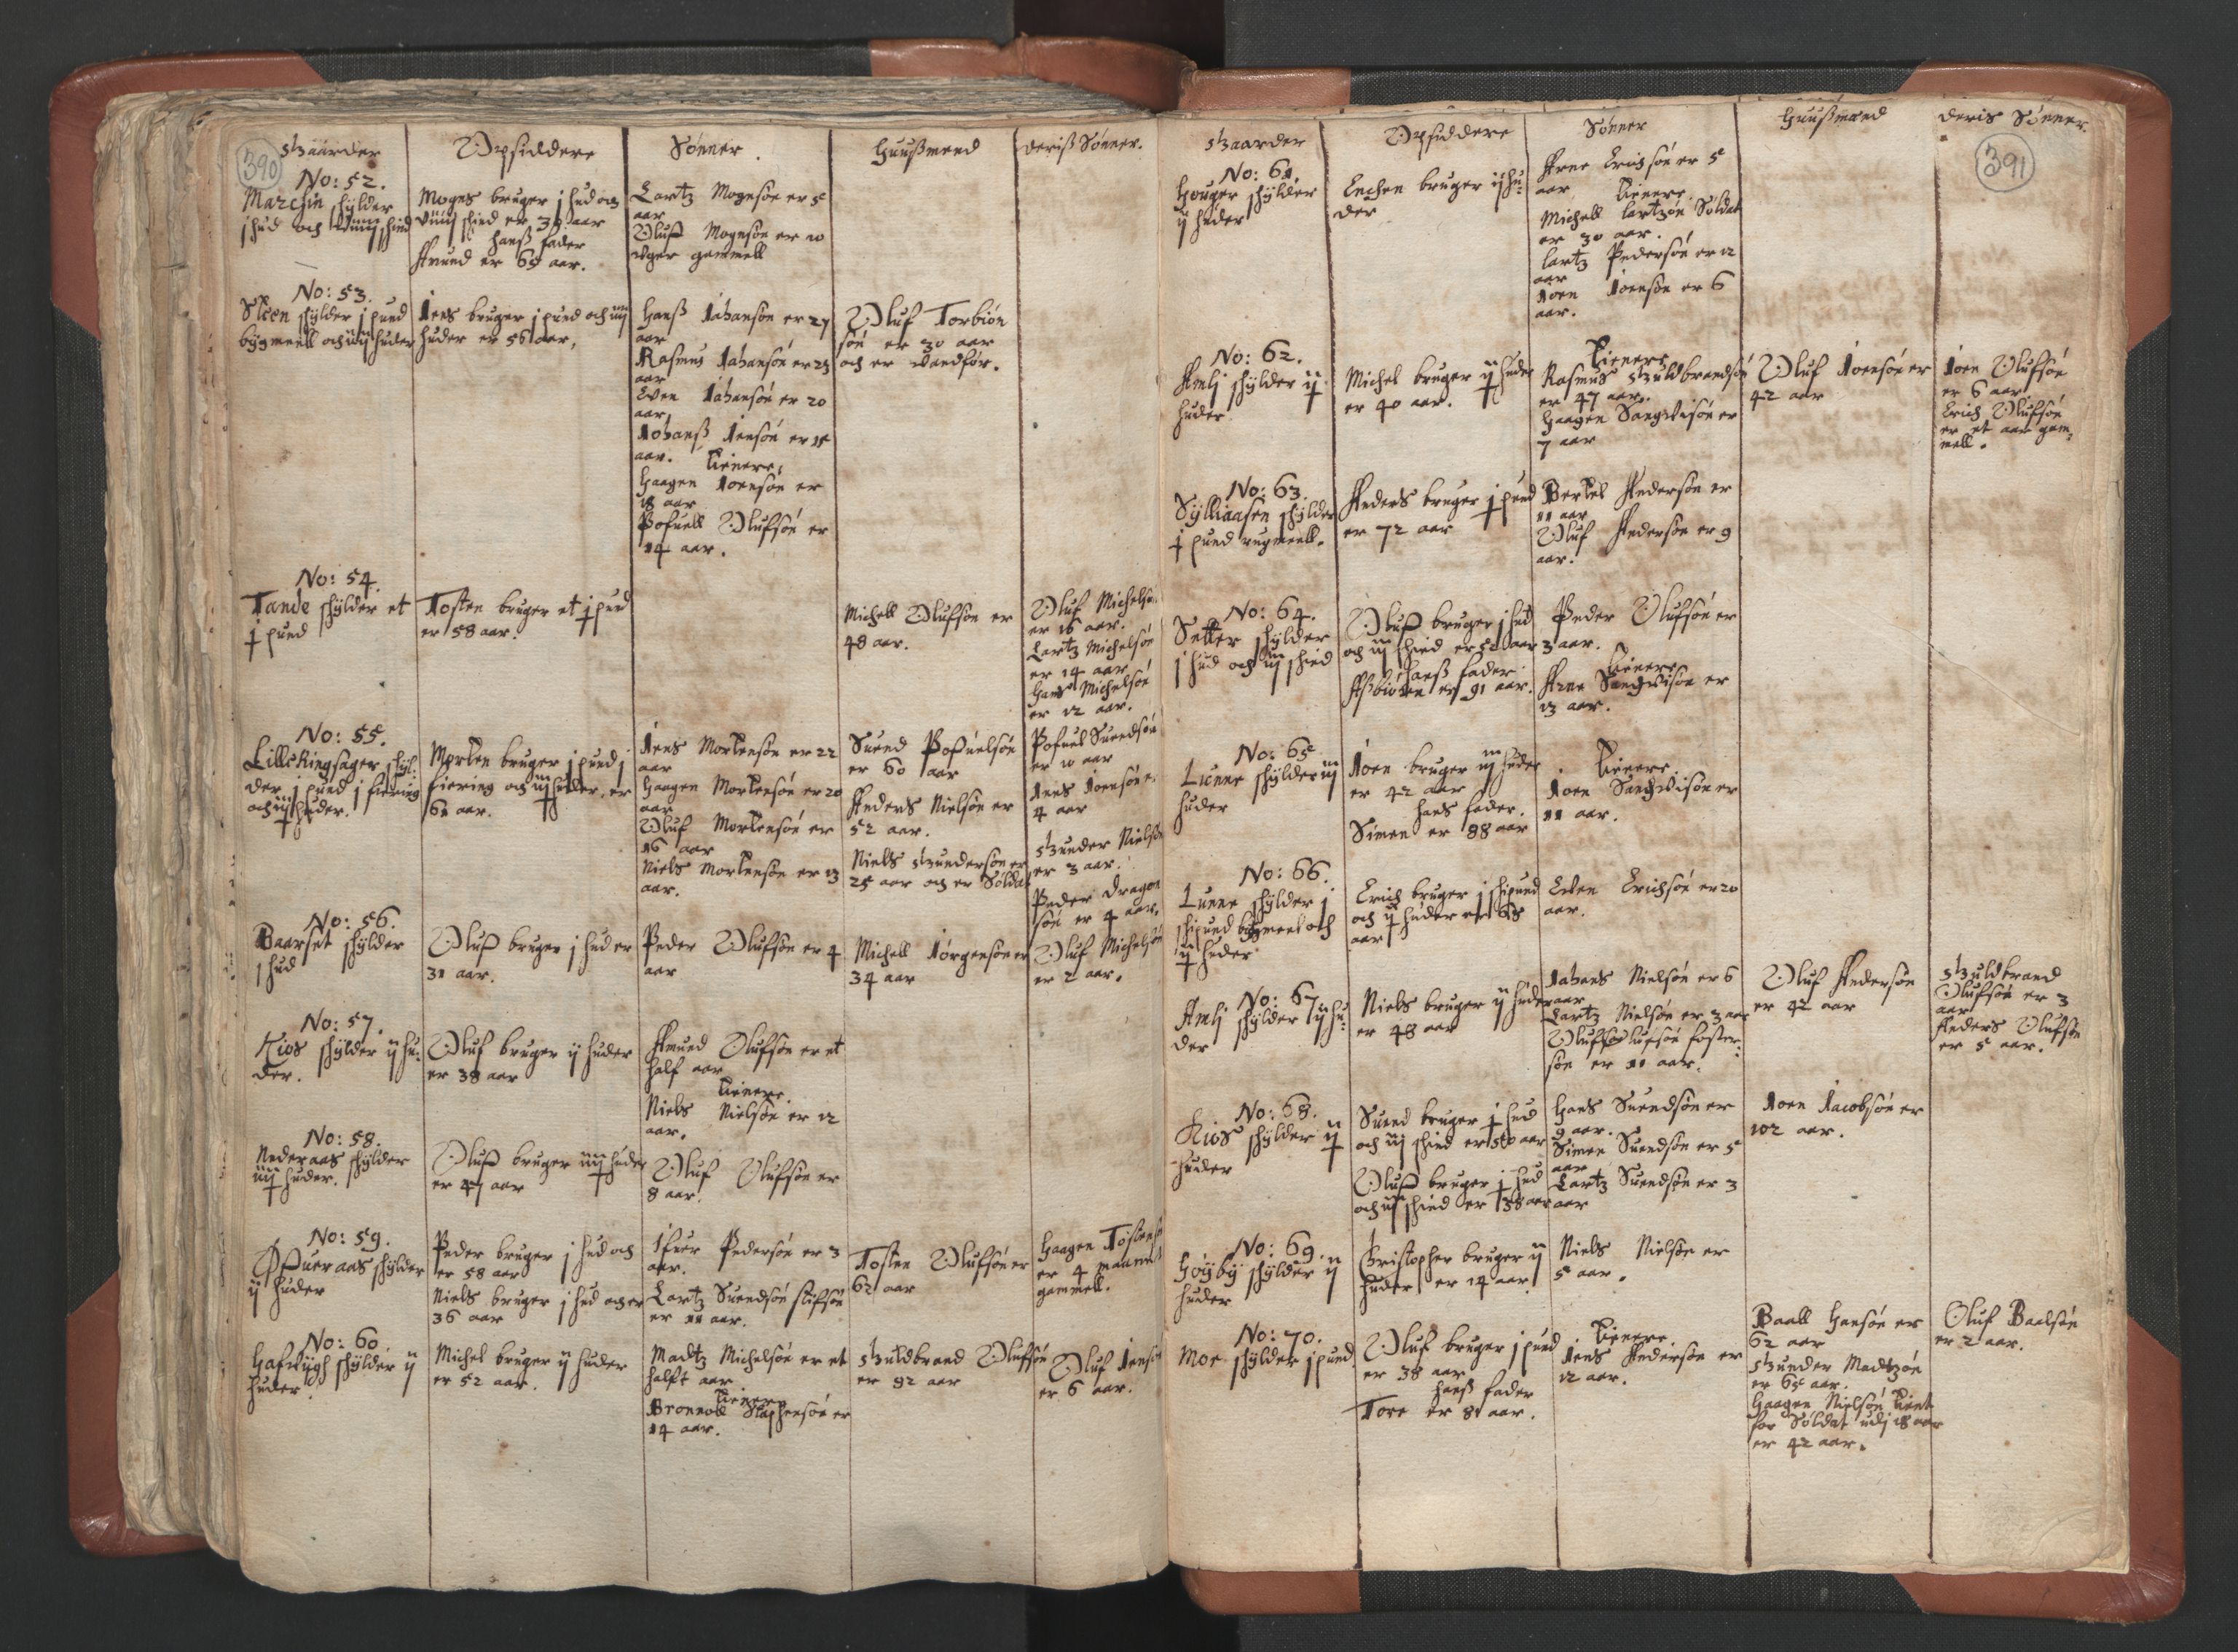 390
Gaarder
Opsiddere
Sønner.
Huußmend
deriß Sønner.
No: 52.
schylder
j hud och schind
Mogns bruger j hud och
schind er aar
hanß fader
Amund er 65 aar.
Lartz Mognsøn er 5
aar
Oluff Mognsøn er 10
uger gammell
No: 53.
Steen schylder j pund
bygmeell och huder
Jens bruger j pund och
huder er 56 aar,
Hanß Johansøn er 27
aar
Rasmus Johansøn er 23
aar
Even Johansøn er 20
aar,
Johanß Jensøn er 18
aar. Tienere,
Haagen Joensøn er
18 aar
Pofuell Olufsøn er
14 aar.
Oluf Torbiøn
søn er 30 aar
och er vandfør.
No: 54.
Tande schylder et
j pund
Tosten bruger et j pund
er 58 aar.
Michell Oluffsøn er
48 aar.
Oluf Michelsøn
er 16 aar.
Lartz Michelsøn
er 14 aar
Hans Michelsøn
er 12 aar.
No: 55.
Lille Ringsager schyl:
der j pund j fiering
och huder.
Morten bruger j pund j
fiering och huder, er
aar.
Jens Mortensøn er 22
aar
Haagen Mortensøn er 20
aar
Oluf Mortensøn er
16 aar
Niels Mortensøn er 13
aar.
Suend Pofuelsøn
er 60 aar
Anders Nielsøn er
52 aar.
Niels Gundersøn er
25 aar och er Soldat
Pofuel Suendsøn
er 10 aar
Jens Joensøn er
4 aar
Gunder Nielsøn
er 3 aar.
Peder Dragon
søn er 4 aar.
No: 56.
Baarset schylder
j hud
Oluff bruger j hud er
31 aar.
Peder Olufsøn er 4
aar
Michell Jørgensøn er
34 aar
Oluf Michelsøn
er 2 aar.
No: 57.
Kios schylder ij hu:
der.
Oluf bruger ij huder
er 38 aar
Amund Olufsøn er et
half aar
Tienere.
Niels Nielsøn er 12
aar.
No: 58.
Nederaas schylder
huder.
Oluff bruger huder
er 47 aar
Oluf Olufsøn er
8 aar.
No: 59.
Øfueraas schylder
ij huder
Peder bruger j hud och
er 58 aar
Niels bruger j hud och er
36 aar
Ifuer Pedersøn er 3
aar.
Lartz Suendsøn stifsøn
er 11 aar.
Tosten Olufsøn er
62 aar
Haagen Tostensøn
er 4 maaned
gammell.
No: 60.
schylder ij
huder.
Michel bruger ij huder
er 52 aar.
Madtz Michelsøn er et
halft aar
Tienere
Staphensøn er
14 aar.
Guldbrand Oluffsøn
er 82 aar
Oluf Jensøn
er 6 aar.
391
Gaarder
Opsiddere
Sønner
Huußmænd
deris Sønner.
No: 61.
Houger schylder
ij huder
Enchen bruger ij hu:
der
Arne Erichsøn er 5
aar
Tienere
Michell Lartzøn Soldat
er 30 aar.
Lartz Pedersøn er 12
aar
Joen Joensøn er 6
aar.
No: 62.
Amlj schylder ij
huder
Michel bruger ij huder
er 40 aar.
Tienere
Rasmus Guldbrandsøn
er 47 aar.
Haagen søn er
7 aar
Oluf Joensøn er
42 aar
Joen Olufsøn
er 6 aar
Erich Olufsøn
er et aar gam:
mell.
No: 63.
Sylliaasen schylder
j pund rugmeell.
Anders bruger j pund
er 72 aar
Bertel Andersøn er
11 aar
Oluf Andersøn er 9
aar.
No: 64.
Setter schylder
j hud och iij schind
Oluff bruger j hud
och iij schind er aar
hanß fader
Aßbiørn er 91 aar.
Peder Olufsøn er
3 aar.
Tienere
Arne søn er
13 aar.
No: 65
Lunne schylder iij
huder
Joen bruger iij huder
er 42 aar
hans fader.
Simen er 88 aar
Tienere
Joen søn er
11 aar.
No: 66.
Lunne schylder j
schipund bygmeel och
ij huder
Erich bruger j schipund
och ij huder er 68
aar
Even Erichsøn er 20
aar.
No: 67
Amlj schylder ij hu:
der
Niels bruger ij huder
er 48 aar
Johans Nielsøn er 6
aar
Lartz Nielsøn er 3 aar
Oluff Olufsøn foster:
søn er 11 aar.
Oluf Andersøn
er 42 aar
Guldbrand
Olufsøn er 3
aar
Anders Olufsøn
er 5 aar.
No: 68.
Kios schylder ij
huder
Suend bruger j hud
och iij schind er aar
Oluff bruger j hud
och schind er 38 aar
Hans Suendsøn er
9 aar.
Simen Suendsøn er 5
aar
Lartz Suendsøn er 3
aar
Joen Jacobsøn er
102 aar.
No: 69.
Høyby schylder ij
huder
Christopher bruger ij
huder er 14 aar
Niels Nielsøn er
5 aar.
No: 70.
Moe schylder j pund.
Oluf bruger j pund
er 38 aar
hanß fader
Tore er 81 aar.
Tienere.
Jens Andersøn er
12 aar.
Baall Hansøn er
62 aar
Gunder Madtzøn
er 65 aar.
Haagen Nielsøn tient
for Soldat udj 18 aar
er 42 aar.
Oluf Baalsøn
er 2 aar.